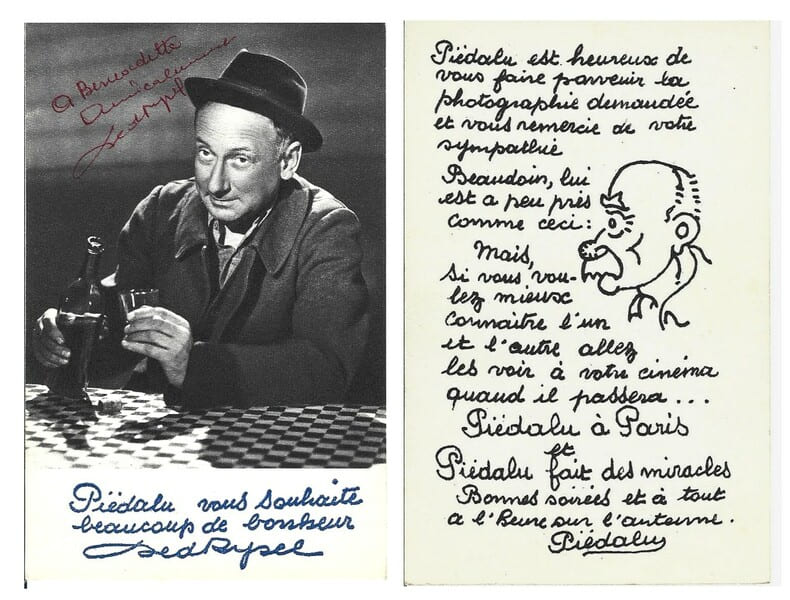 à Bernadette
Amicalement
Ded Rysel
Piédalu vous souhaite
beaucoup de bonheur
Ded Rysel
Piédalu est heureux de
vous faire parvenir la
photographie demandée
et vous remercie de votre
sympathie
Beaudoin, lui
est a peu près
comme ceci :
Mais,
si vous vou-
lez mieux
connaitre l'un
et l'autre allez
les voir à votre cinéma
quand il passera ...
Piédalu à Paris
et
Piédalu fait des miracles
Bonnes soirées et à tout
a l'heure sur l'antenne.
Piédalu